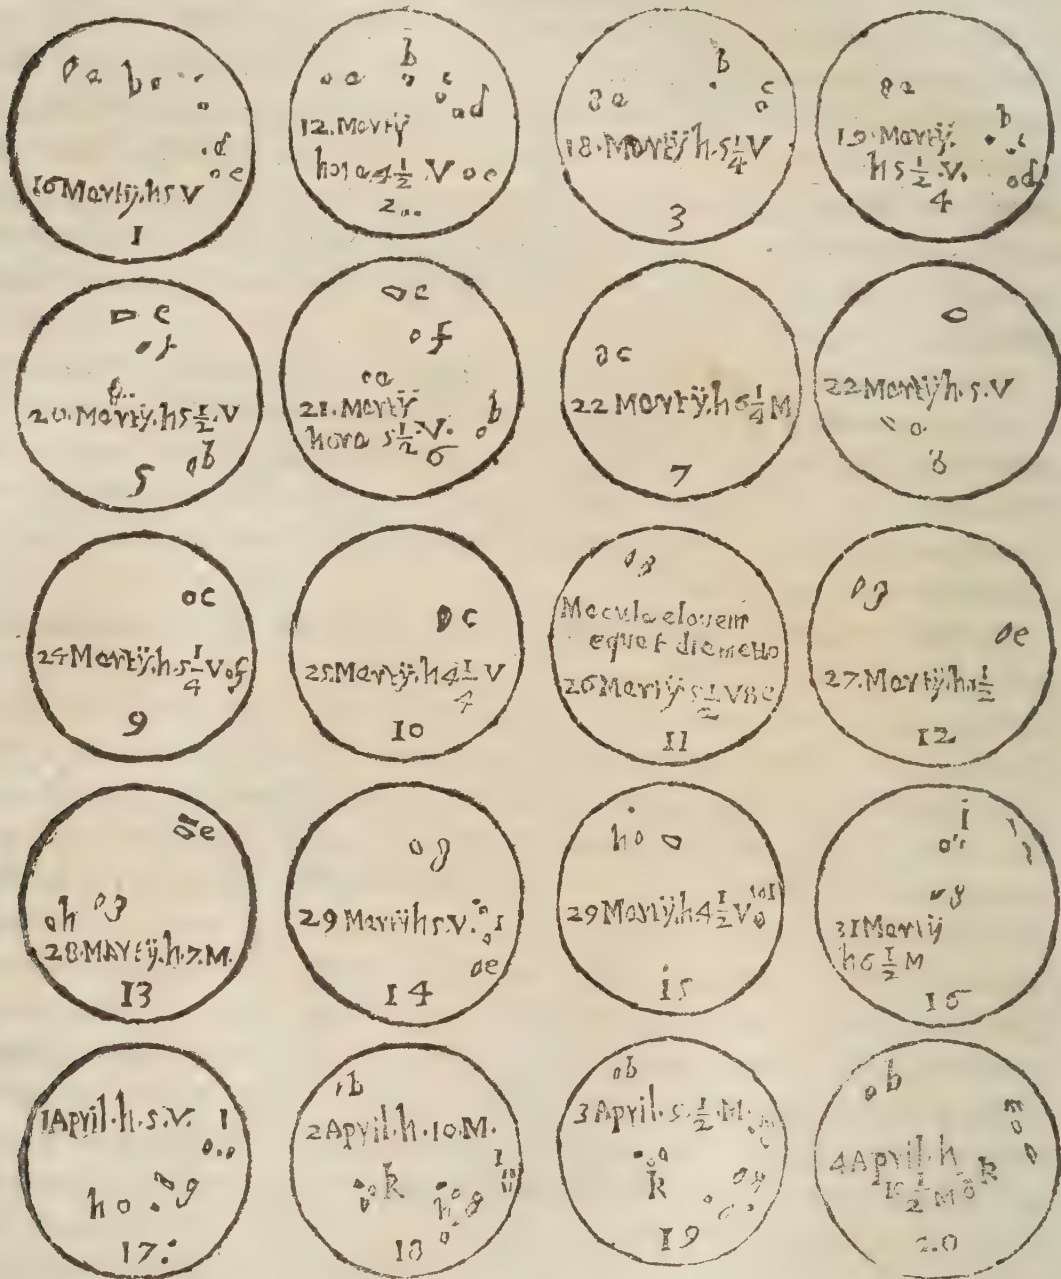 a b
d
e
16 Martÿ. h 5 V
1
b
a c
d
12. Martÿ
hora. 4 1/2 . V e
2..
b
a c
18. Martÿ h. 5 1/4 V
3
a
b
19. Martÿ. c
h 5 1/2 . V. d
4
e
f
20. Martÿ. h 5 1/2 . V
b
5
e
f
a
21. Martÿ
hora 5 1/2 . V. b
6
c
22 Martÿ. h 6 1/4 M
7
22 Martÿ h. 5. V
8
c
24 Martÿ. h. 5 1/4 V. f
9
c
25. Martÿ. h 4 1/4 V
10
g
Macula e Iovem
equat diametro
26 Martÿ 5 1/2 V e
11
g
e
27. Martÿ. h. 1/2
12
e
h g
28. Martÿ. h. 7. M.
13
g
29 Martÿ h 5. V. I
e
14
h
29 Martÿ. h 4 1/2 V I
i5
i
g
31 Martÿ
h 6 1/2 M
16
1 April. h. 5. V. I
h g
17.
b
2 April. h. 10. M.
k I
h g
18
b
3 April. 5. 1/2 . M.
k
19
b
m
4 April. h
10 1/2 M k
2.0